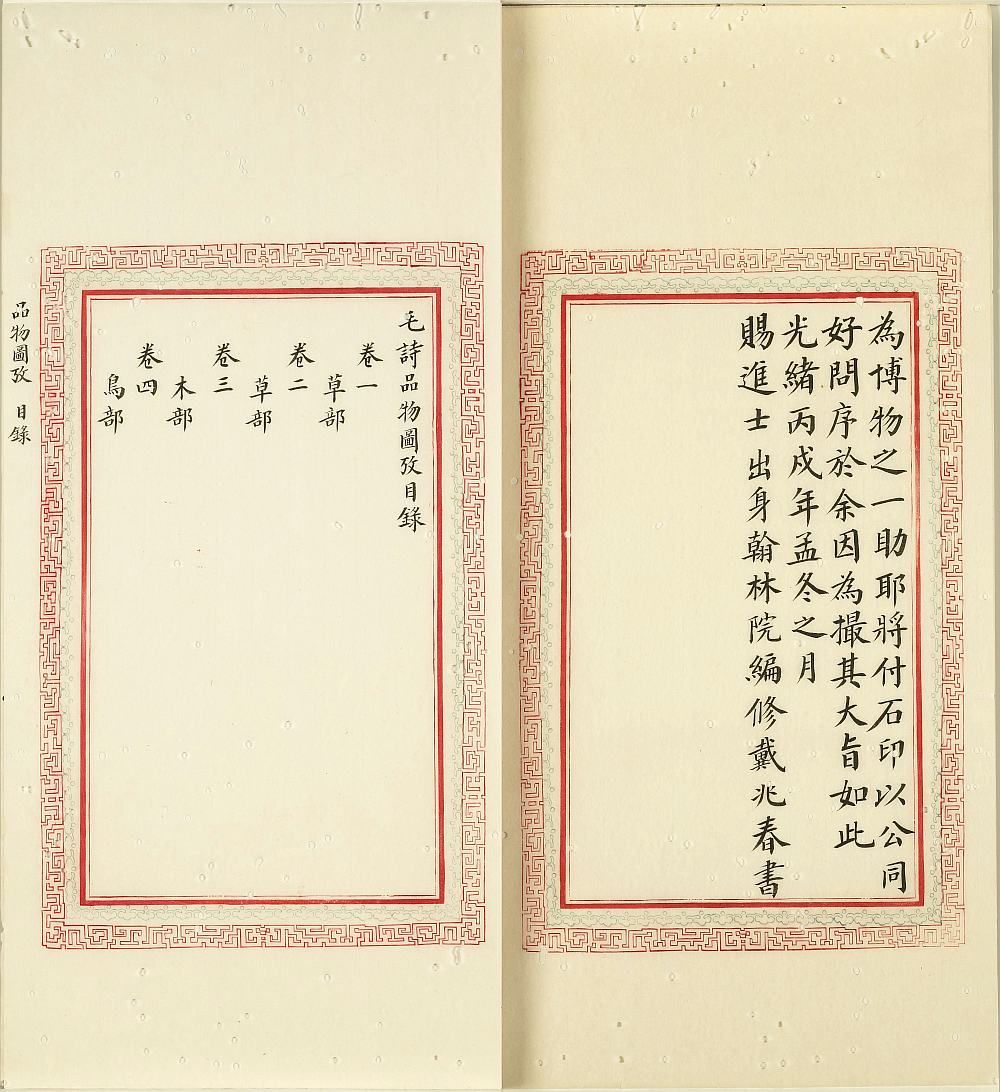 為博物之一助耶將付石印以公同
好問序於余因為撮其大旨如此
光緒丙戍年孟冬之月
賜進士出身翰林院編修戴兆春書
毛詩品物圖攷目錄
卷一
草部
卷二
草部
卷三
木部
卷四
鳥部
品物圖攷 目錄